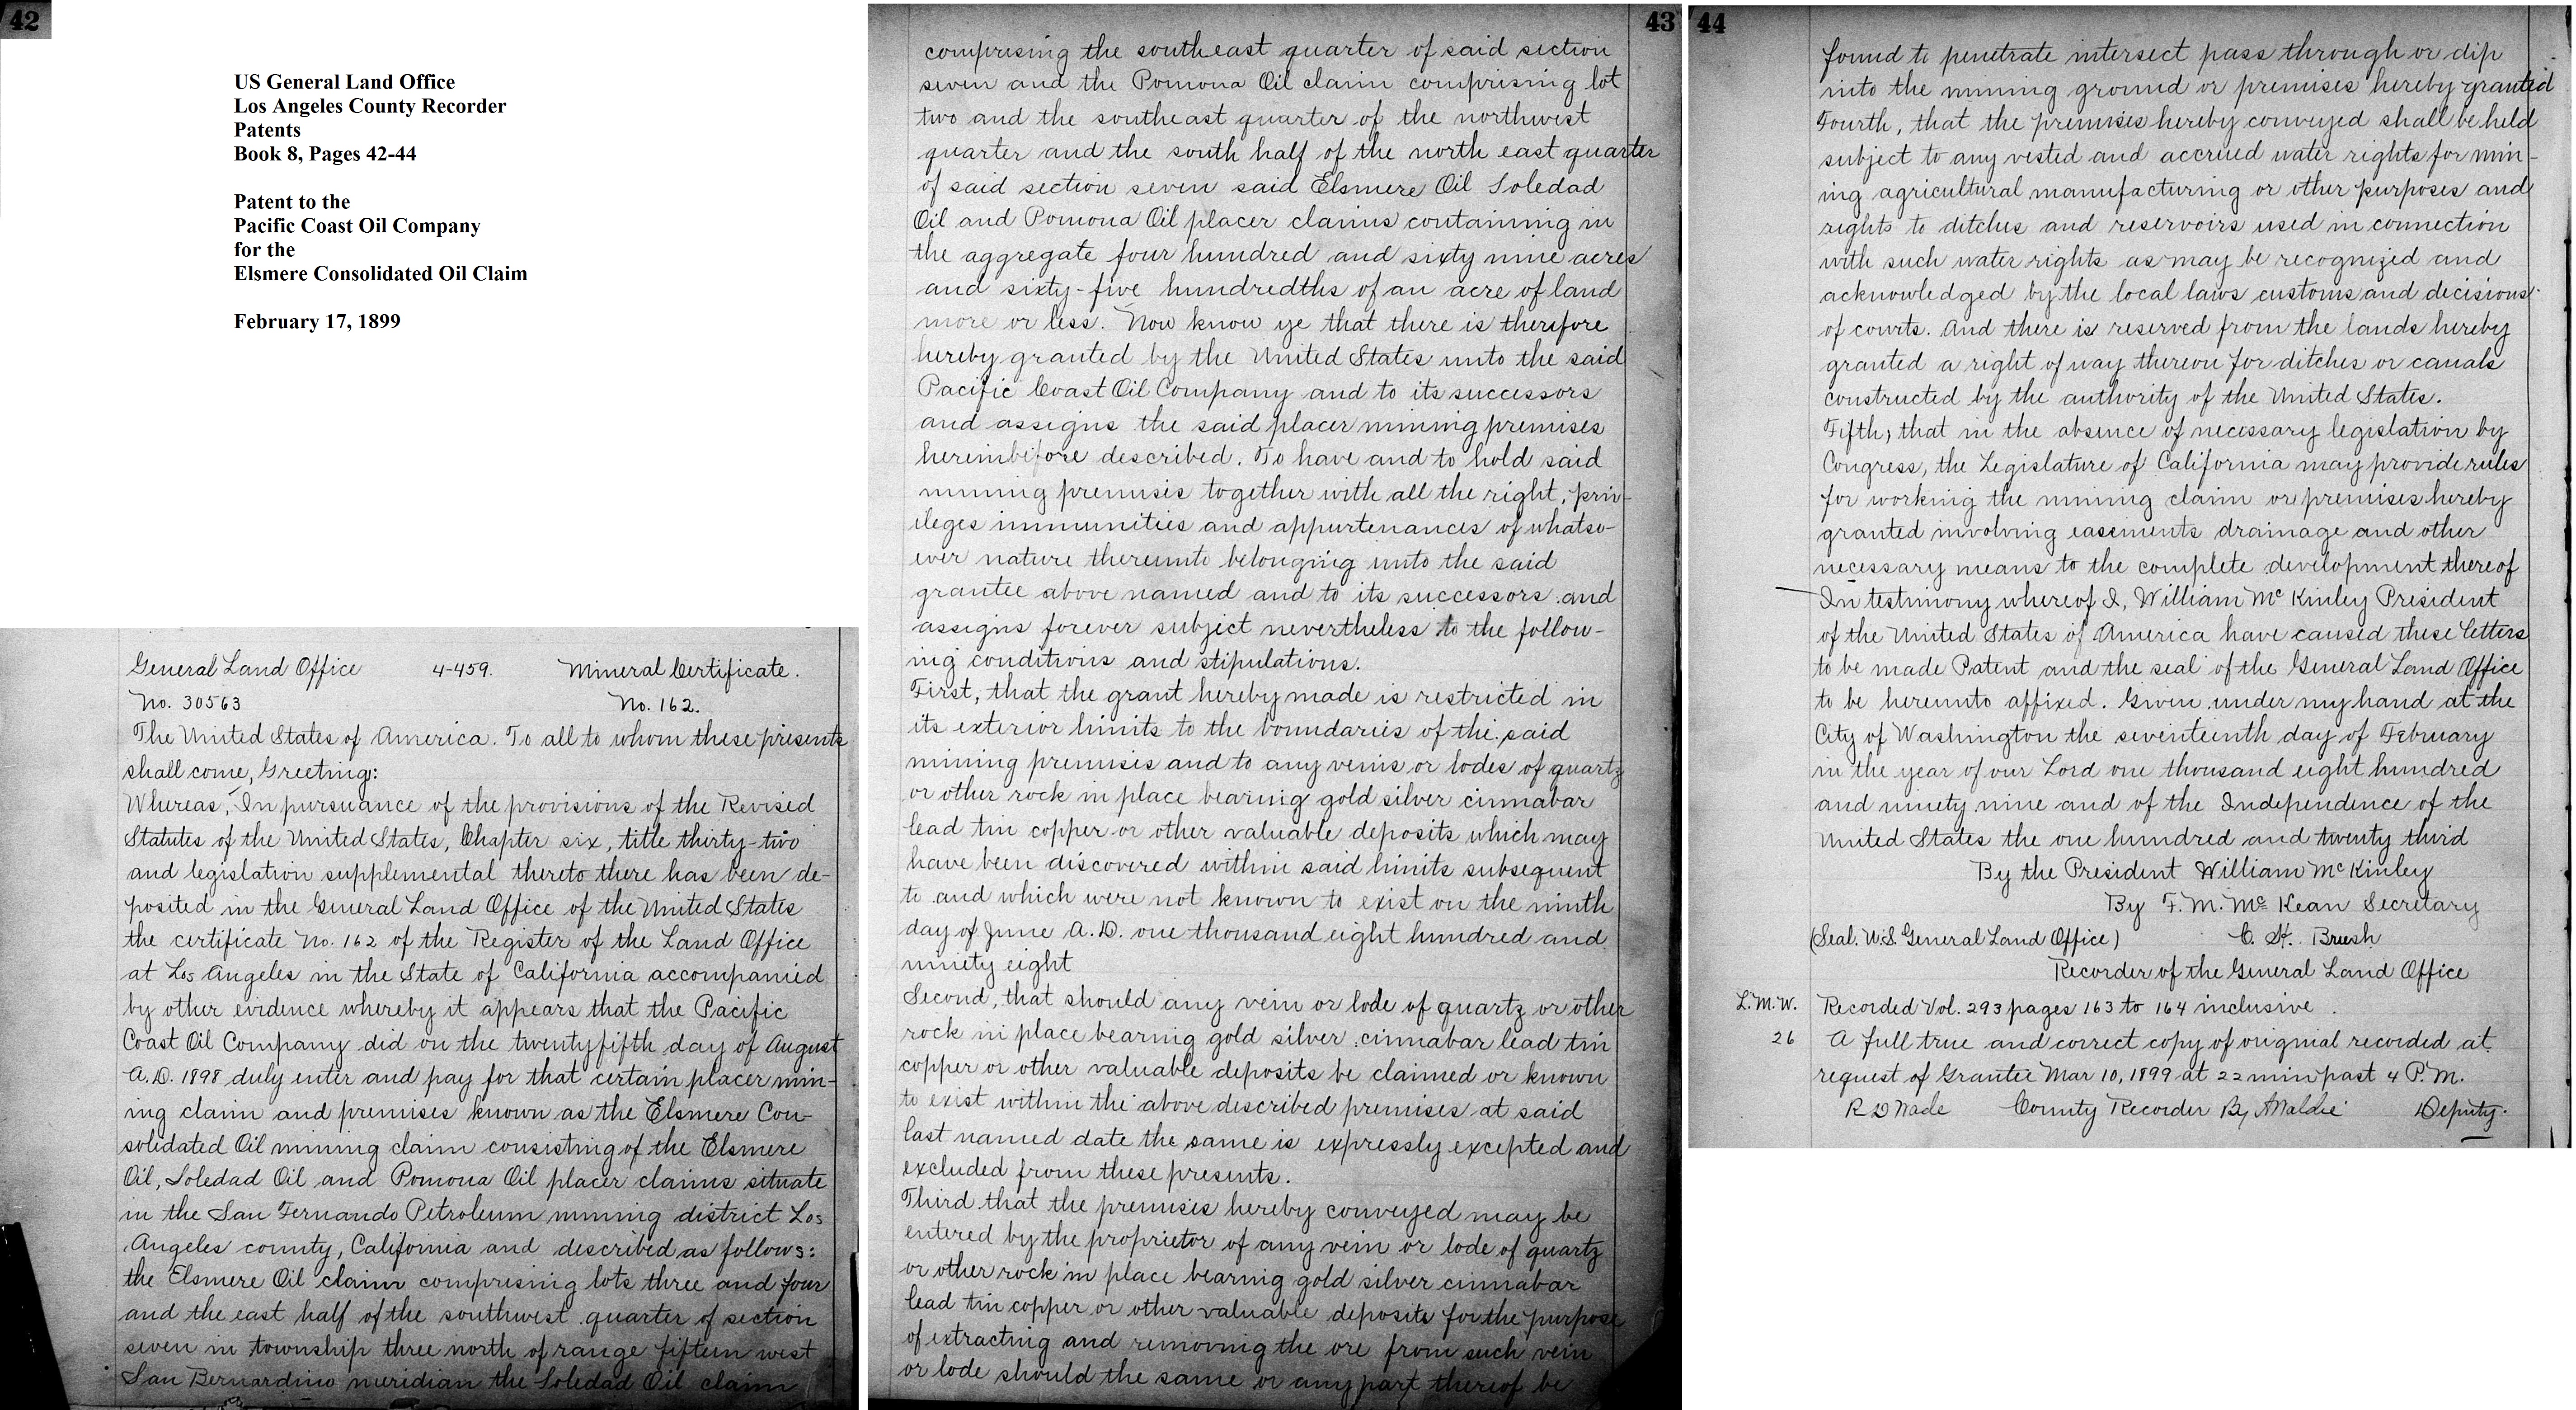 42
US General Land Office
Los Angeles County Recorder
Patents
Book 8, Pages 42-44
Patent to the
Pacific Coast Oil Company
for the
Elsmere Consolidated Oil Claim
February 17, 1899
General Land Office 4-459. Mineral Certificate.
No. 30563 No. 162.
The United States of America. To all to whom these presents
shall come, Greeting:
Whereas, In pursuance of the provisions of the Revised
Statutes of the United States, Chapter six, title thirty-two
and legislation supplemental thereto there has been de-
posited in the General Land Office of the United States
the certificate No. 162 of the Register of the Land Office
at Los Angeles in the State of California accompanied
by other evidence whereby it appears that the Pacific
Coast Oil Company did on the twenty fifth day of August
A.D. 1898 duly enter and pay for that certain placer min-
ing claim and premises known as the Elsmere Con-
solidated Oil mining claim consisting of the Elsmere
Oil, Soledad Oil and Pomona Oil placer claims situate
in the San Fernando Petroleum mining district Los
Angeles county, California and described as follows:
the Elsmere Oil claim comprising lots three and four
and the east half of the southwest quarter of section
seven in township three north of range fifteen west
San Bernardino meridian the Soledad Oil claim
43
comprising the southeast quarter of said section
seven and the Pomona Oil claim comprising lot
two and the southeast quarter of the northwest
quarter and the south half of the north east quarter
of said section seven said Elsmere Oil Soledad
Oil and Pomona Oil placer claims containing in
the aggregate four hundred and sixty nine acres
and sixty-five hundredths of an acre of land
more or less. Now know ye that there is therefore
hereby granted by the United States unto the said
Pacific Coast Oil Company and to its successors
and assigns the said placer mining premises
hereinbefore described. To have and to hold said
mining premises together with all the right, priv-
ileges immunities and appurtenances of whatso-
ever nature thereunto belonging unto the said
grantee above named and to its successors and
assigns forever subject nevertheless to the follow-
ing conditions and stipulations.
First, that the grant hereby made is restricted in
its exterior limits to the boundaries of the said
mining premises and to any veins or lodes of quartz
or other rock in place bearing gold silver cinnabar
lead tin copper or other valuable deposits which may
have been discovered within said limits subsequent
to and which were not known to exist on the ninth
day of June A.D. one thousand eight hundred and
ninety eight
Second, that should any vein or lode of quartz or other
rock in place bearing gold silver cinnabar lead tin
copper or other valuable deposits be claimed or known
to exist within the above described premises at said
last named date the same is expressly excepted and
excluded from these presents.
Third that the premises hereby conveyed may be
entered by the proprietor of any vein or lode of quartz
or other rock in place bearing gold silver cinnabar
lead tin copper or other valuable deposits for the purpose
of extracting and removing the ore from such vein
or lode should the same or any part thereof be
44
found to penetrate intersect pass through or dip
into the mining ground or premises hereby granted
Fourth, that the premises hereby conveyed shall be held
subject to any vested and accrued water rights for min-
ing agricultural manufacturing or other purposes and
rights to ditches and reservoirs used in connection
with such water rights as may be recognized and
acknowledged by the local laws customs and decisions
of courts. And there is reserved from the lands hereby
granted a right of way thereon for ditches or canals
constructed by the authority of the United States.
Fifth, that in the absence of necessary legislation by
Congress, the Legislature of California may provide rules
for working the mining claim or premises hereby
granted involving easements drainage and other
necessary means to the complete development thereof
In testimony whereof I, William McKinley President
of the United States of America have caused these letters
to be made Patent and the seal of the General Land Office
to be hereunto affixed. Given under my hand at the
City of Washington the seventeenth day of February
in the year of our Lord one thousand eight hundred
and ninety nine and of the Independence of the
United States the one hundred and twenty third
By the President William McKinley
By F. M. McKean Secretary
(Seal. U.S. General Land Office) C. H. Brush
Recorder of the General Land Office
L.M.W. Recorded Vol. 293 pages 163 to 164 inclusive.
26 A full true and correct copy of original recorded at
request of Grantee Mar 10, 1899 at 22 min past 4 P.M.
R D Wade County Recorder By Deputy.